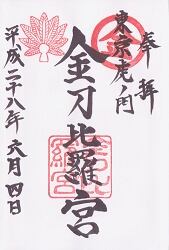 奉拝
東京虎ノ門
金刀比羅宮
平成二十八年六月四日